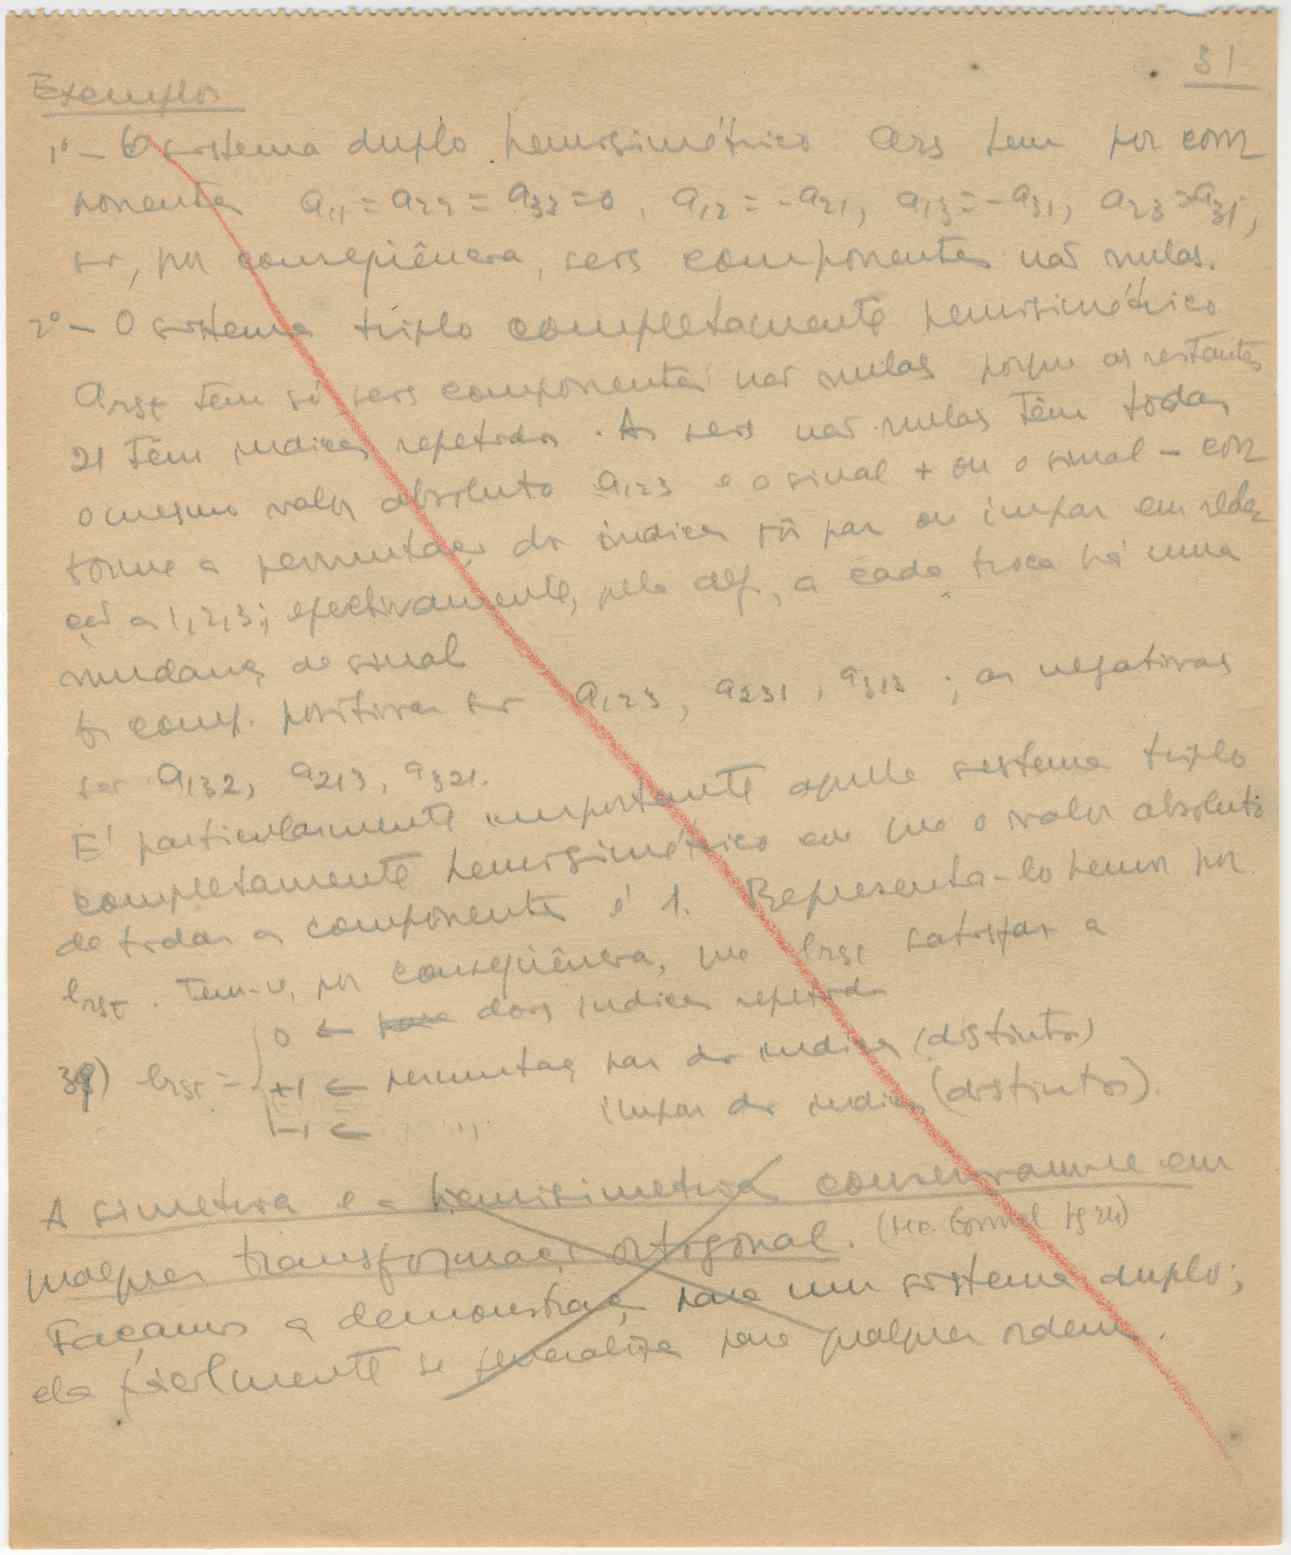 31
Exemplos
1º – O sistema duplo hemisimétrico ars tem por com
ponentes a11 = a22 = a33 = 0, a12 = -a21, a13 = -a31, a23 =
são, por conseqüência, seis componentes não nulas.
2º – O sistema triplo completamente hemisimétrico
arst tem só seis componentes não nulas porque as restantes
21 têm indices repetidos. As seis não nulas têm todas
o mesmo valor absoluto a123 e o sinal + ou o sinal – con
forme a permutação dos indices fôr par ou impar em rela
ção a 1,2,3; efectivamente, pela def., a cada troca há uma
mudança de sinal
As comp. positivas são a123, a231, a312; as negativas
são a132, a213, a321.
É particularmente importante aquele sistema triplo
completamente hemisimétrico em que o valor absoluto
de todas as componentes é 1. Representá-lo hemos por
erst. Tem-se, por conseqüência, que erst satisfaz a
0 ← dois indices repetidos
39) erst = +1 ← permutação par dos indices (distintos)
-1 ← " impar dos indices (distintos).
A simetria e a hemisimetria conservam-se em
qualquer transformação ortogonal. pg 24)
Façamos a demonstração para um sistema duplo;
ela facilmente se generaliza para qualquer ordem.